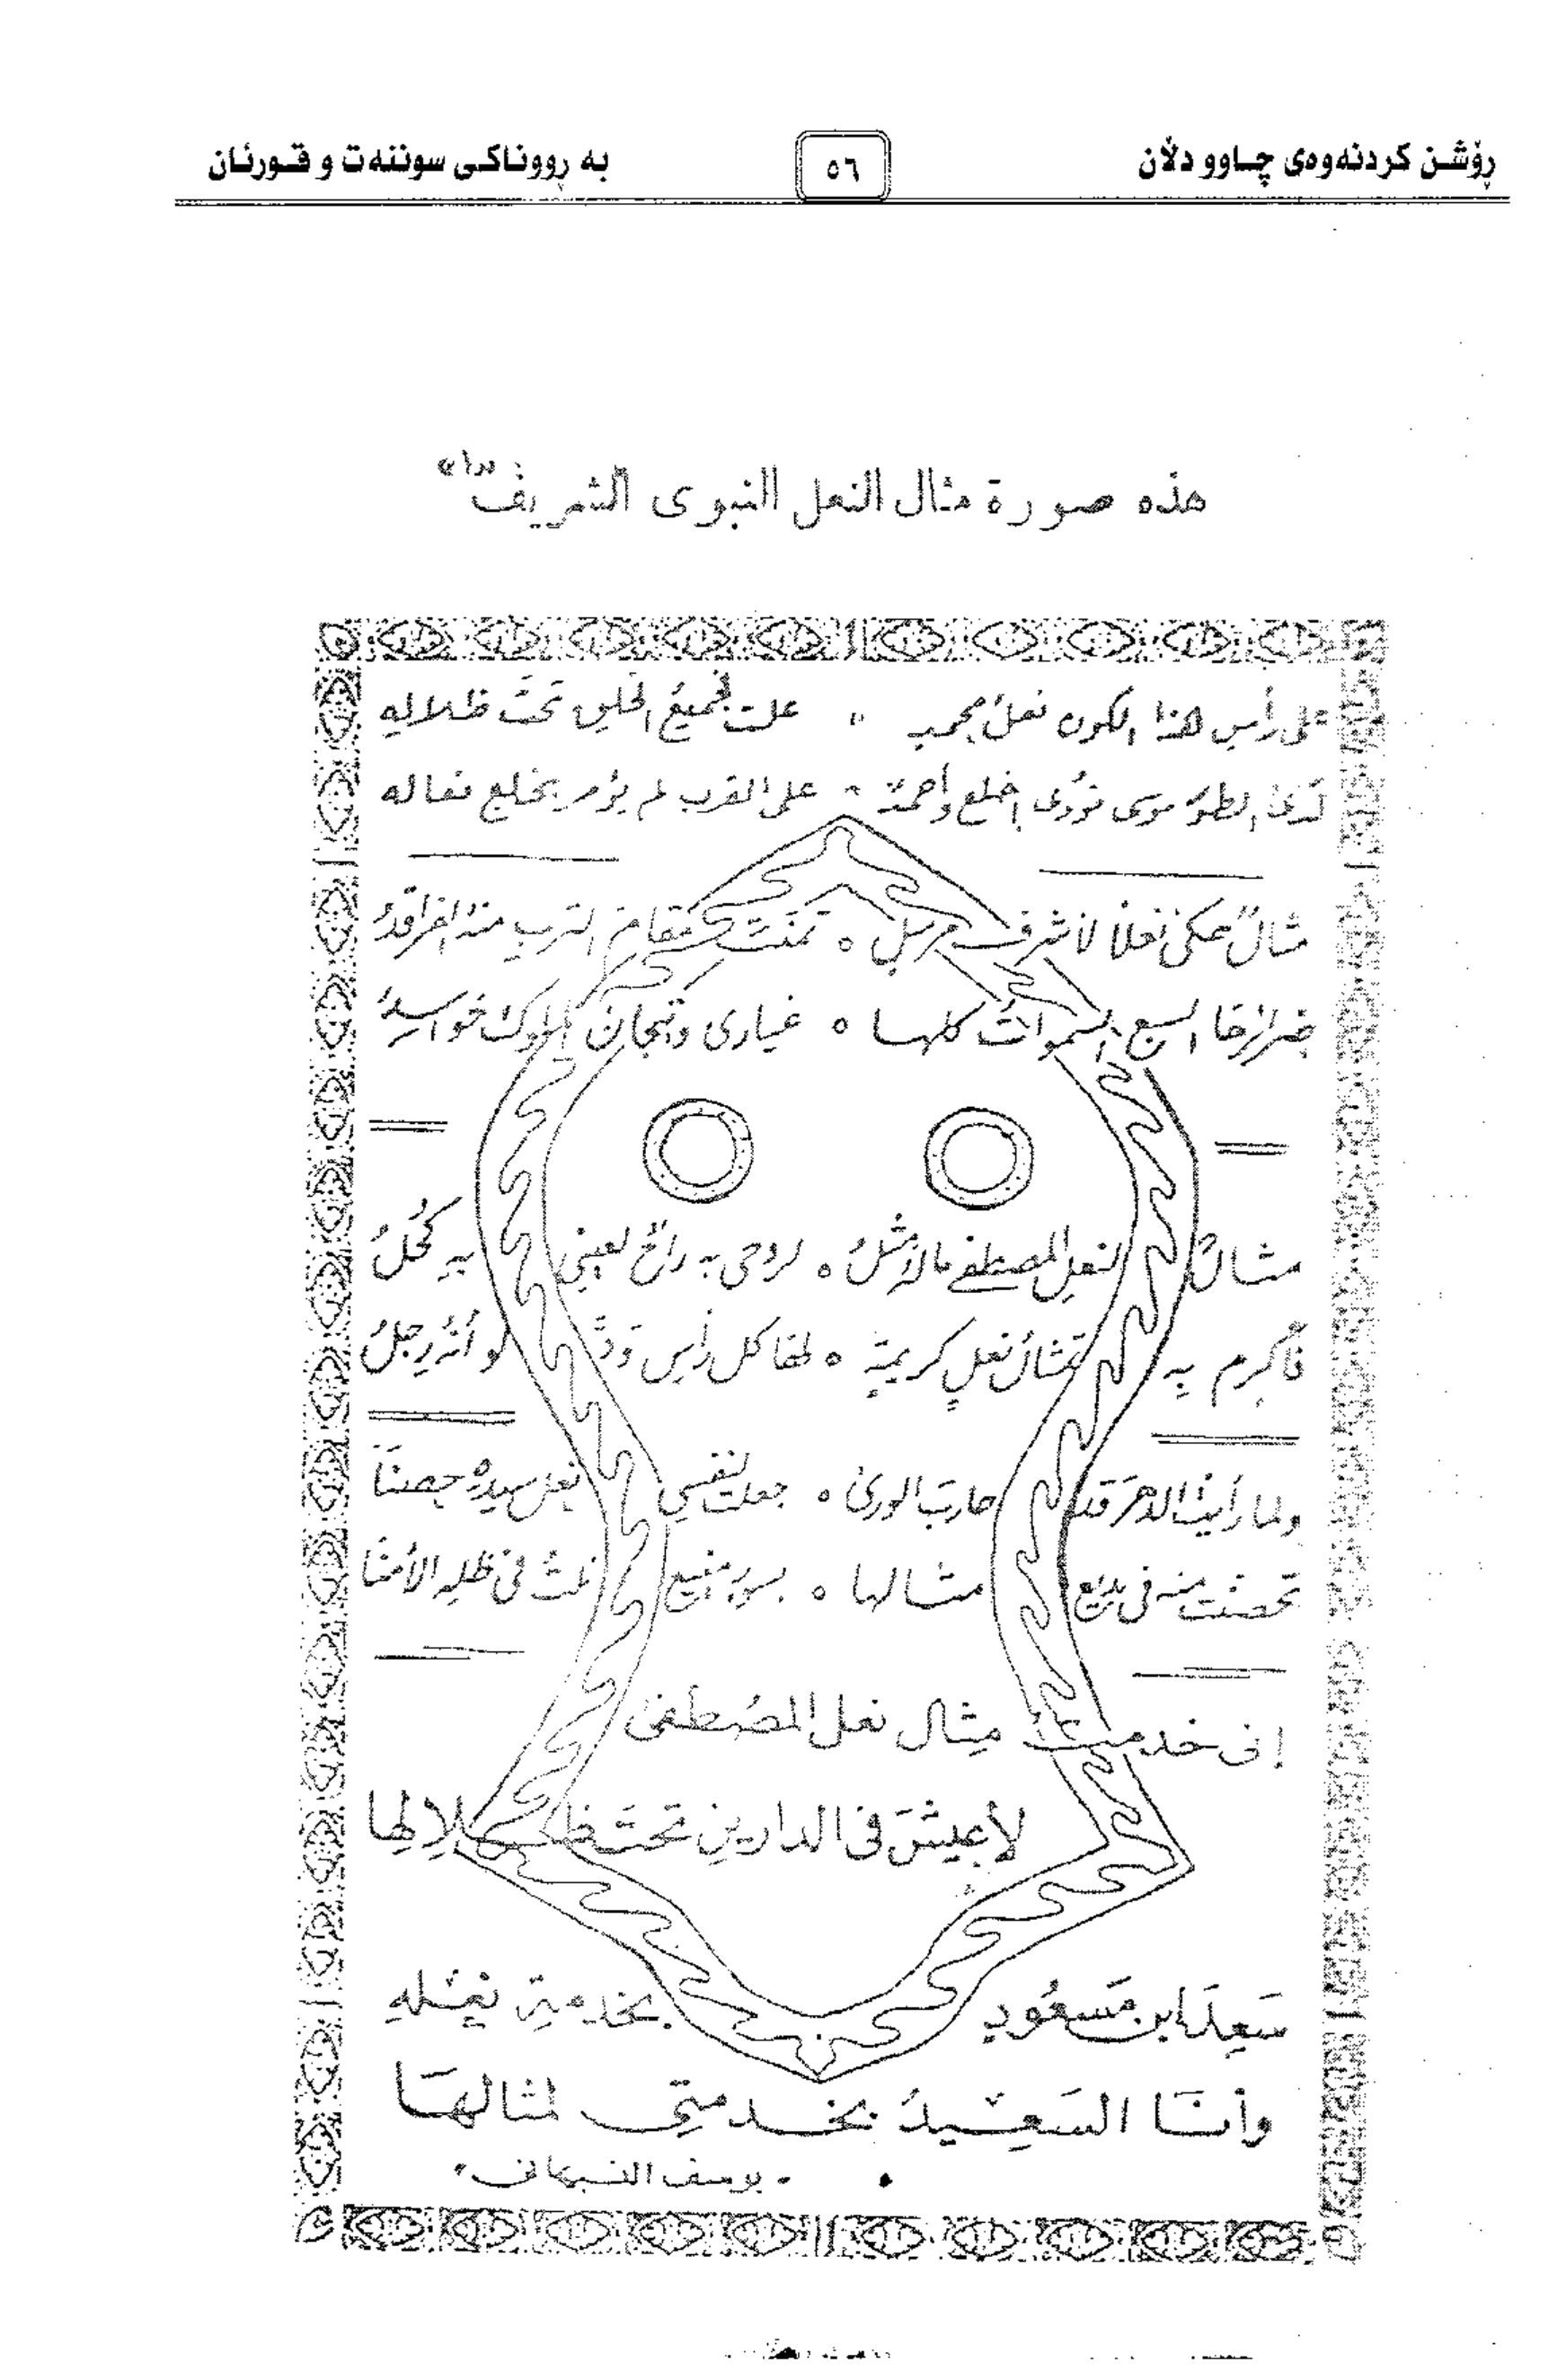 ڕۆشن کردنەوەی چاوو دڵان ٥٦ بە ڕووناکی سوننەت و قورئان
هذه صورة مثال النعل النبوى الشريف
على رأس هذا الكون نعل محمد علت فجميع الخلق تحت ظلاله
لدى الطور موسى نودى اخلع وأحمد على القرب لم يؤمر بخلع نعاله
مثال حكى نعلا لأشرف مرسل ٥ تمنت مقام الترب منه الفراقد
ضرائرها السبع السموات كلها ٥ غيارى وتيجان الملوك حواسد
مثال لنعل المصطفى ماله مثل ٥ لروحى به راح لعينى به كحل
فأكرم به تمثال نعل كريمة ٥ لها كل رأس ود لو أنه رجل
ولما رأيت الدهر قد حارب الورى ٥ جعلت لنفسى نعل سيده حصنا
تحصنت منه فى بديع مثالها ٥ بسور منيع نلت فى ظله الأمنا
إنى خدمت مثال نعل المصطفى
لأعيش فى الدارين تحت ظلالها
سعد ابن مسعود بخدمة نعله
وأنا السعيد بخدمتى لمثالها
يوسف النبهانى